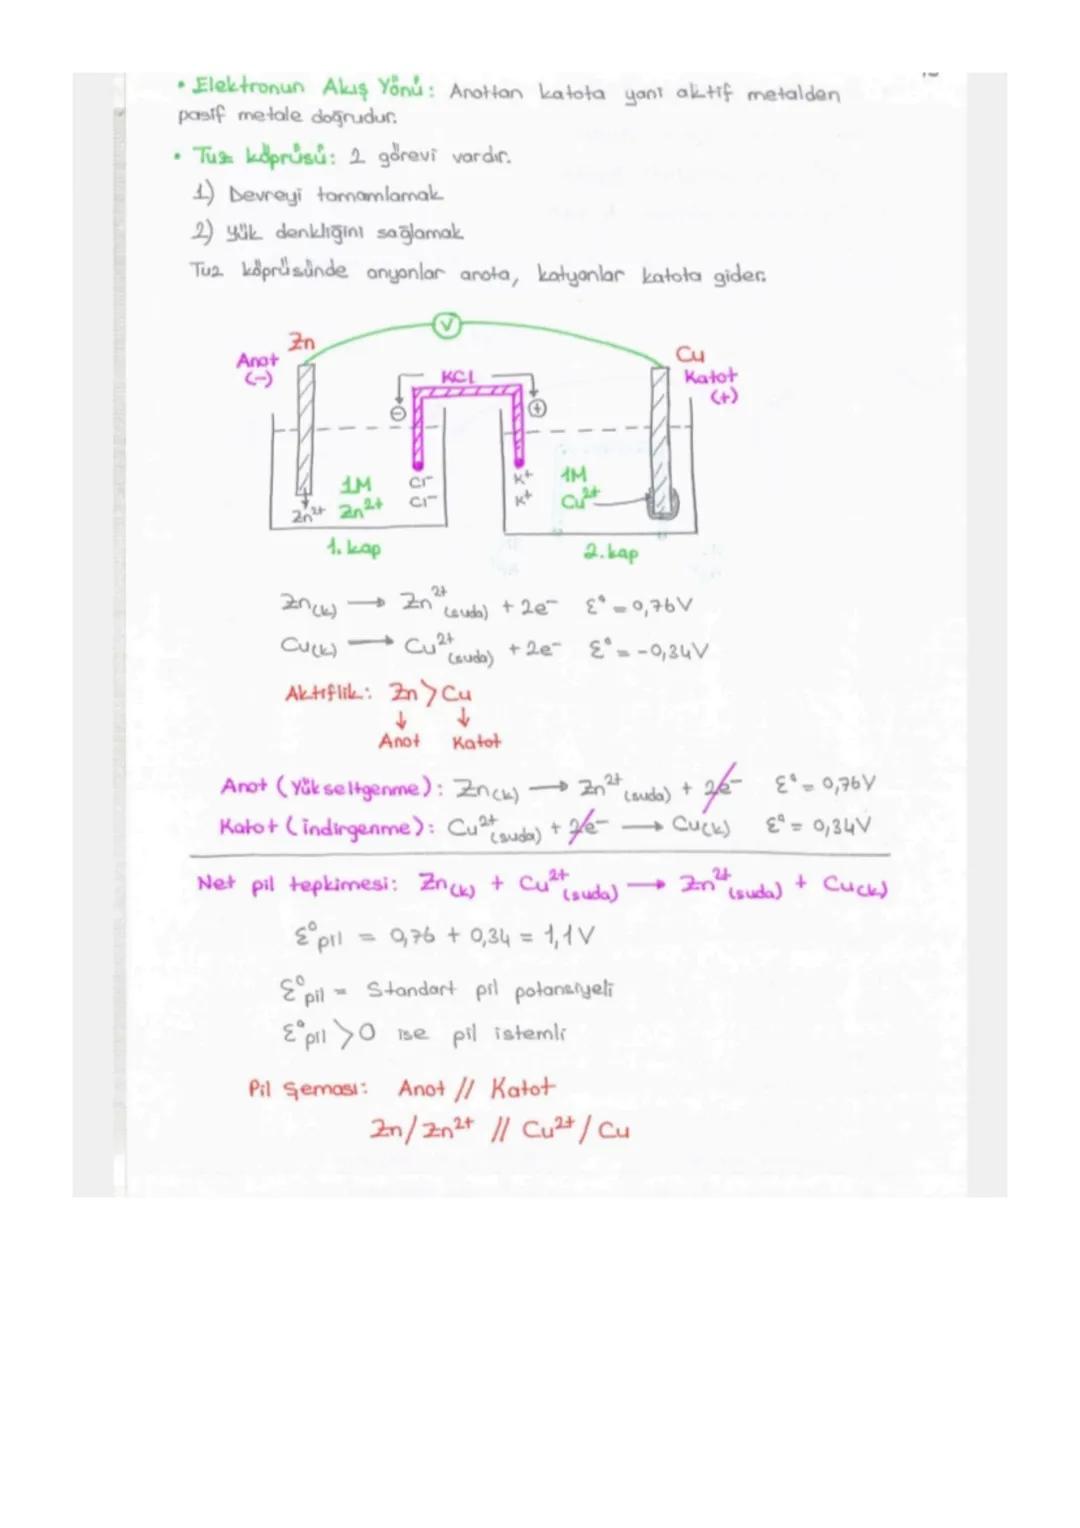 • Elektronun Akış Yönü: Anottan katota yani aktif metalden
pasif metale doğrudur.
• Tuz köprüsü: 2 görevi vardır.
1) Devreyi tamamlamak
2) Yük denkliğini sağlamak
Tuz köprüsünde anyonlar anota, katyonlar katota gider.
V
Zn
Anot
(-)
KCl
Cu
Katot
(+)
⊖
⊕
1M
Zn²⁺
Zn²⁺
Cl⁻
Cl⁻
K⁺
K⁺
1M
Cu²⁺
1. kap
2. kap
Zn(k) → Zn²⁺(suda) + 2e⁻ Ɛ° = 0,76V
Cu(k) → Cu²⁺(suda) + 2e⁻ Ɛ° = -0,34V
Aktiflik: Zn > Cu
↓ ↓
Anot Katot
Anot (Yükseltgenme): Zn(k) → Zn²⁺(suda) + 2e⁻ Ɛ° = 0,76V
Katot (indirgenme): Cu²⁺(suda) + 2e⁻ → Cu(k) Ɛ° = 0,34V
Net pil tepkimesi: Zn(k) + Cu²⁺(suda) → Zn²⁺(suda) + Cu(k)
Ɛ°pil = 0,76 + 0,34 = 1,1V
Ɛ°pil = Standart pil potansiyeli
Ɛ°pil > 0 ise pil istemli
Pil Şeması: Anot // Katot
Zn/Zn²⁺ // Cu²⁺/Cu